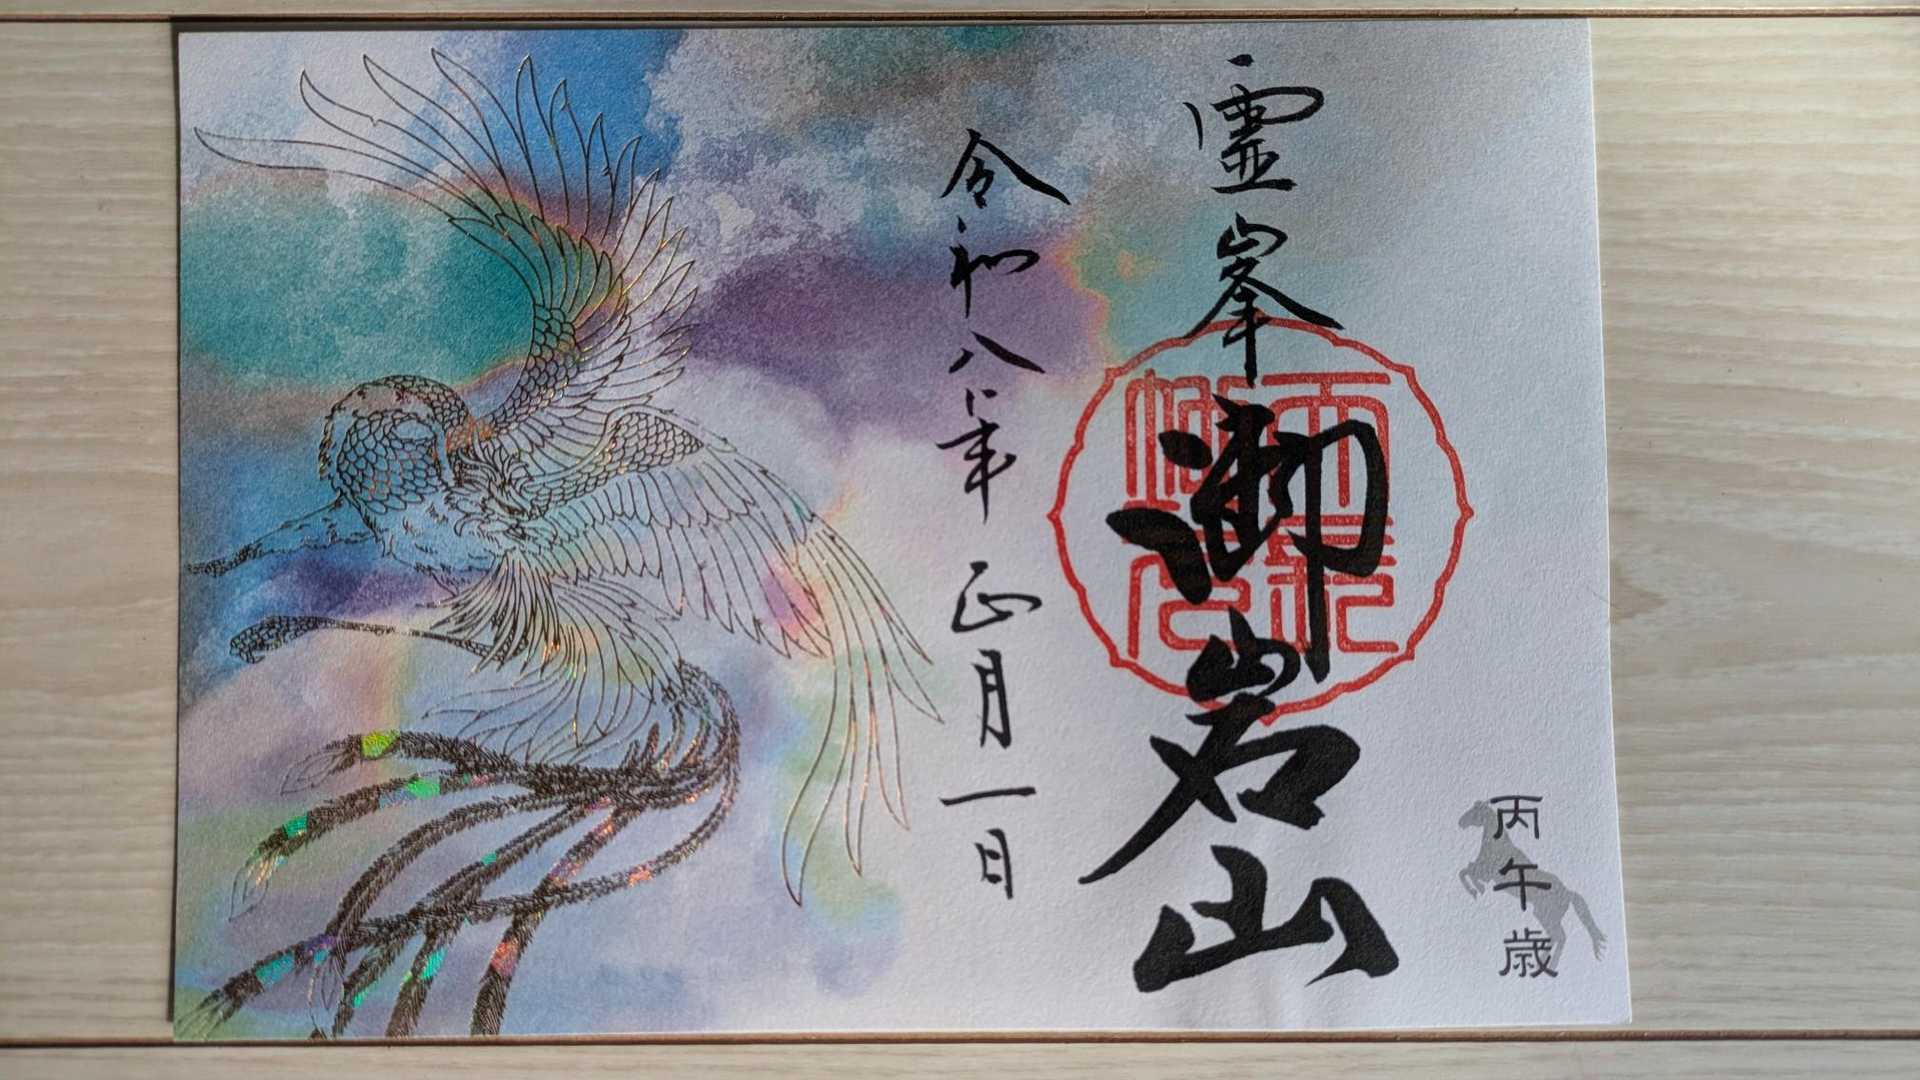 丙午歳
霊峯
御岩山
令和八年 正月一日